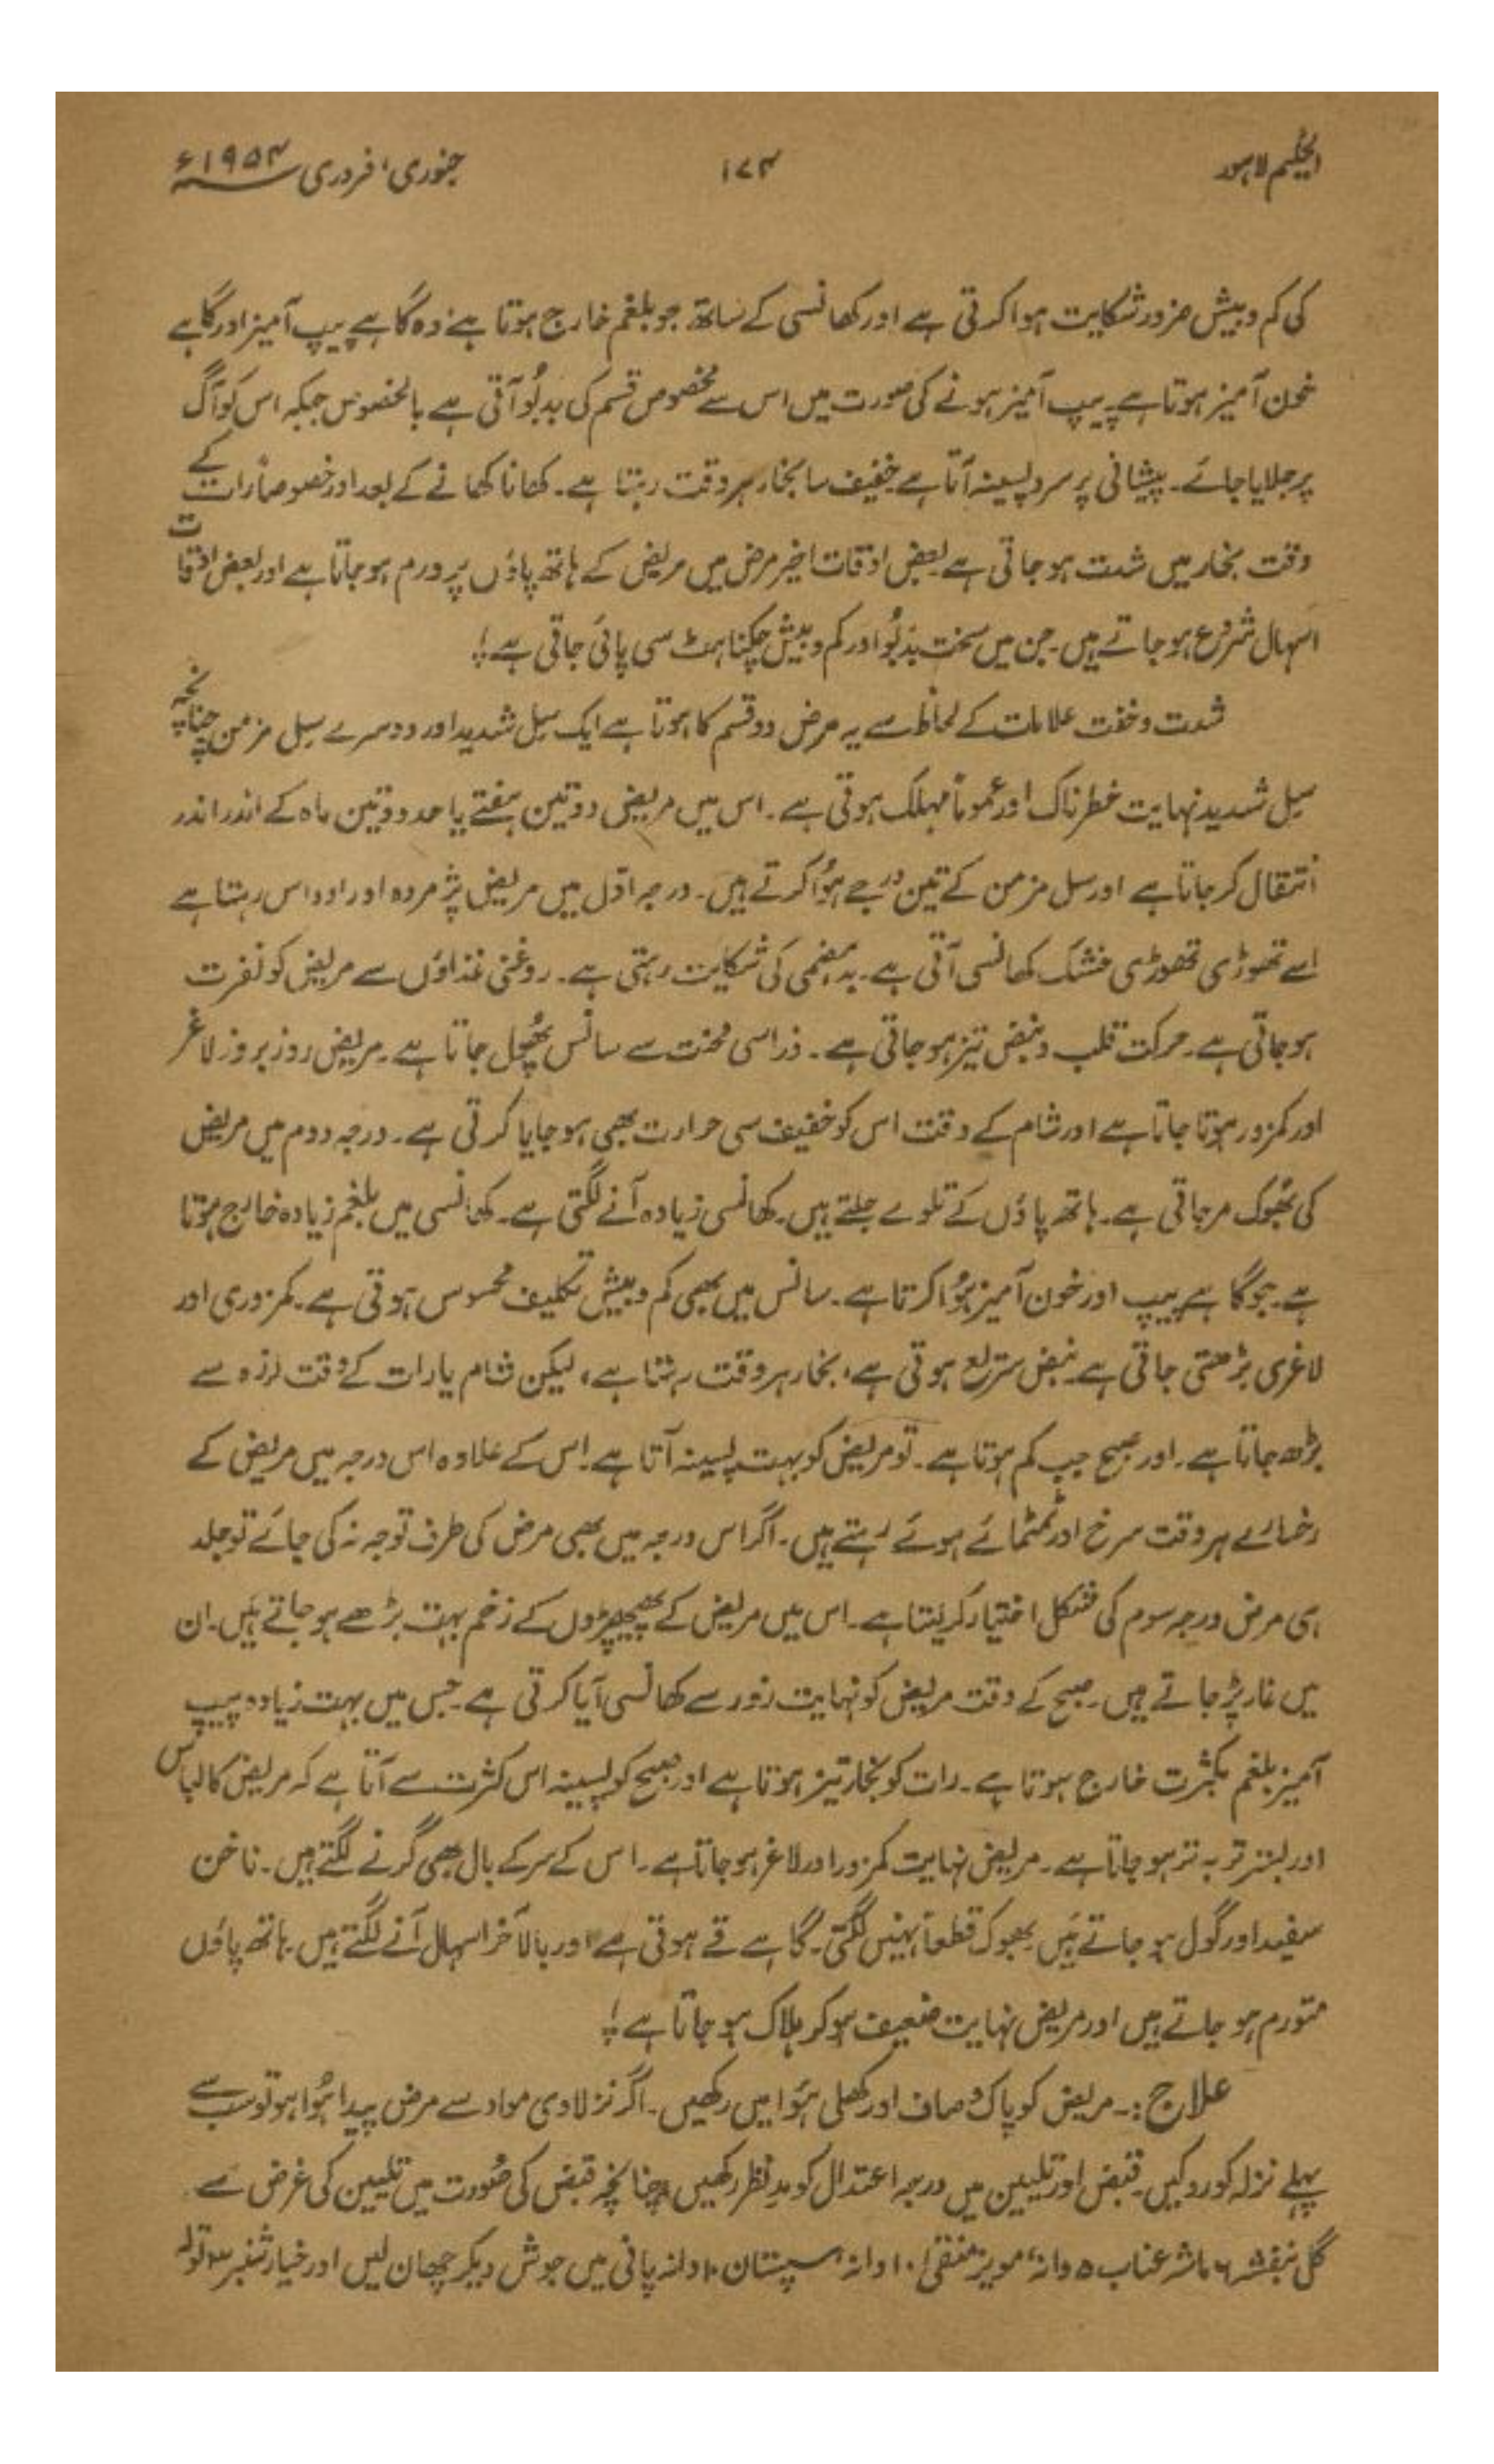 الحکیم لاہور ۱۷۴ جنوری، فروری ۱۹۵۴ء
کی کم و بیش ضرور شکایت ہوا کرتی ہے اور کھانسی کے ساتھ جو بلغم خارج ہوتا ہے، وہ گاہے پیپ آمیز اور گاہے
خون آمیز ہوتا ہے۔ پیپ آمیز ہونے کی صورت میں اس سے مخصوص قسم کی بدبُو آتی ہے بالخصوص جبکہ اس کو آگ
پر جلایا جائے۔ پیشانی پر سرد پسینہ آتا ہے خفیف سا بخار ہر وقت رہتا ہے۔ کھانا کھانے کے بعد اور خصوصاً رات کے
وقت بخار میں شدت ہو جاتی ہے بعض اوقات اخیر مرض میں مریض کے ہاتھ پاؤں پر ورم ہو جاتا ہے اور بعض اوقات
اسہال شروع ہو جاتے ہیں۔ جن میں سخت بدبُو اور کم و بیش چکناہٹ سی پائی جاتی ہے!
شدت و خفت علامات کے لحاظ سے یہ مرض دو قسم کا ہوتا ہے ایک سِل شدید اور دوسرے سِل مزمن چنانچہ
سِل شدید نہایت خطرناک اور عموماً مہلک ہوتی ہے۔ اس میں مریض دو تین ہفتے یا حد دو تین ماہ کے اندر اندر
انتقال کر جاتا ہے اور سل مزمن کے تین درجے ہُوا کرتے ہیں۔ درجہ اوّل میں مریض پژمردہ اور اوداس رہتا ہے
اسے تھوڑی تھوڑی خشک کھانسی آتی ہے۔ بدہضمی کی شکایت رہتی ہے۔ روغنی غذاؤں سے مریض کو نفرت
ہو جاتی ہے۔ حرکت قلب و نبض تیز ہو جاتی ہے۔ ذرا سی محنت سے سانس پھُول جاتا ہے۔ مریض روز بروز لاغر
اور کمزور ہوتا جاتا ہے اور شام کے وقت اس کو خفیف سی حرارت بھی ہو جایا کرتی ہے۔ درجہ دوم میں مریض
کی بھُوک مر جاتی ہے۔ ہاتھ پاؤں کے تلوے جلتے ہیں۔ کھانسی زیادہ آنے لگتی ہے۔ کھانسی میں بلغم زیادہ خارج ہوتا
ہے۔ جو گاہے پیپ اور خون آمیز ہُوا کرتا ہے۔ سانس میں بھی کم و بیش تکلیف محسوس ہوتی ہے۔ کمزوری اور
لاغری بڑھتی جاتی ہے نبض سریع ہوتی ہے، بخار ہر وقت رہتا ہے، لیکن شام یا رات کے وقت لرزہ سے
بڑھ جاتا ہے۔ اور صبح جب کم ہوتا ہے۔ تو مریض کو بہت پسینہ آتا ہے۔ اس کے علاوہ اس درجہ میں مریض کے
رخسارے ہر وقت سرخ اور تمتمائے ہوئے رہتے ہیں۔ اگر اس درجہ میں بھی مرض کی طرف توجہ نہ کی جائے تو جلد
ہی مرض درجہ سوم کی شکل اختیار کر لیتا ہے۔ اس میں مریض کے پھیپھڑوں کے زخم بہت بڑھے ہو جاتے ہیں۔ ان
میں غار پڑ جاتے ہیں۔ صبح کے وقت مریض کو نہایت زور سے کھانسی آیا کرتی ہے۔ جس میں بہت زیادہ پیپ
آمیز بلغم بکثرت خارج ہوتا ہے۔ رات کو بخار تیز ہوتا ہے اور صبح کو پسینہ اس کثرت سے آتا ہے کہ مریض کا لباس
اور بستر تر بہ تر ہو جاتا ہے۔ مریض نہایت کمزور اور لاغر ہو جاتا ہے۔ اس کے سر کے بال بھی گرنے لگتے ہیں۔ ناخن
سفید اور گول ہو جاتے ہیں۔ بھوک قطعاً نہیں لگتی۔ گاہے قے ہوتی ہے اور بالآخر اسہال آنے لگتے ہیں۔ ہاتھ پاؤں
متورم ہو جاتے ہیں اور مریض نہایت ضعیف ہو کر ہلاک ہو جاتا ہے!
علاج:۔ مریض کو پاک و صاف اور کھلی ہَوا میں رکھیں۔ اگر نزلاوی مواد سے مرض پیدا ہُوا ہو تو سب سے
پہلے نزلہ کو روکیں۔ قبض اور تلیین میں درجہ اعتدال کو مدِ نظر رکھیں، چنانچہ قبض کی صُورت میں تلیین کی غرض سے
گل بنفشہ ۶ ماشہ عناب ۵ دانہ، مویز منقٰی ۱۰ دانہ، سپستان ۱۰ دانہ پانی میں جوش دیکر چھان لیں اور خیار شنبر ۳ تولہ